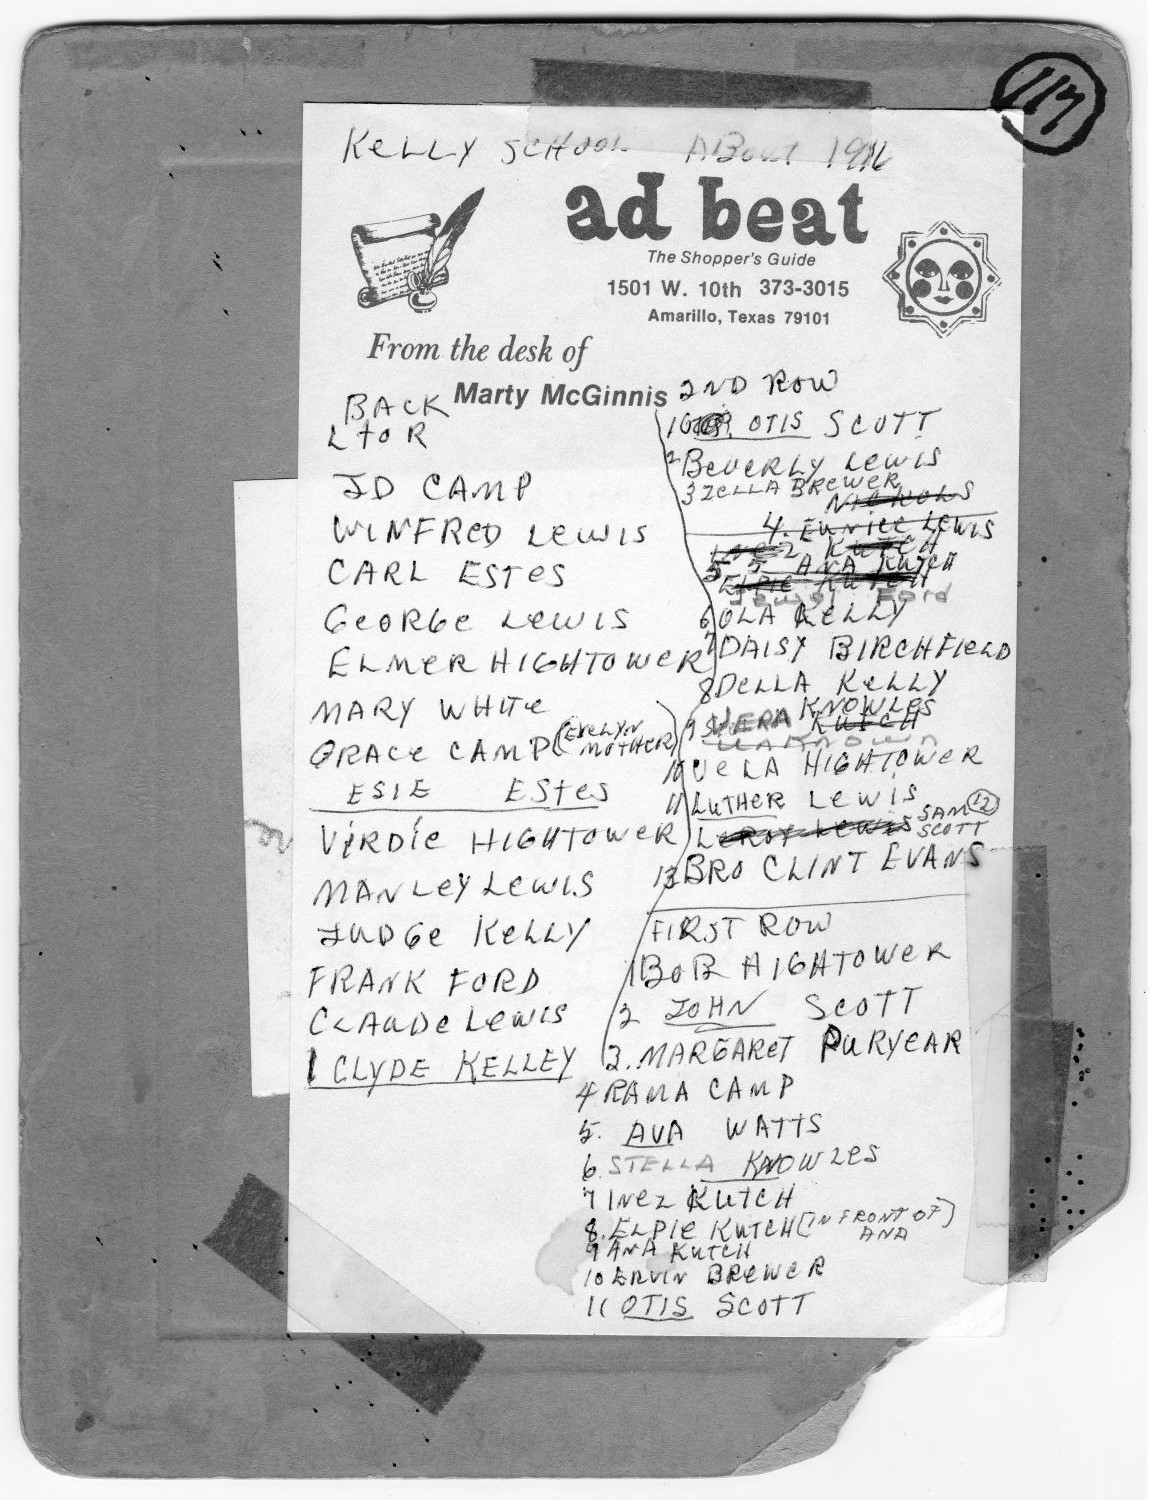 117
KELLY SCHOOL ABout 1916
ad beat
The Shopper's Guide
1501 W. 10th 373-3015
Amarillo, Texas 79101
From the desk of
Marty McGinnis
BACK
L to R
JD CAMP
WINFRED LEWIS
CARL ESTES
GEORGE LEWIS
ELMER HIGHTOWER
MARY WHITE
GRACE CAMP (EVELYN MOTHER)
ESIE ESTES
VIRDIE HIGHTOWER
MANLEY LEWIS
JUDGE KELLY
FRANK FORD
CLAUDE LEWIS
1 CLYDE KELLEY
2ND ROW
1 OTIS SCOTT
2 BEVERLY LEWIS
3 ZELLA BREWER
NICHOLS
4. EUNICE LEWIS
INEZ KUTCH
5 5 ANA KUTCH
ELPIE KUTCH
Jewel Ford
6 OLA KELLY
7 DAISY BIRCHFIELD
8 DELLA KELLY
KNOWLES
9 VERA KUTCH
UNKNOWN
10 VELA HIGHTOWER
11 LUTHER LEWIS
LEROY LEWIS SAM SCOTT 12
13 BRO CLINT EVANS
FIRST ROW
1 BOB HIGHTOWER
2 JOHN SCOTT
3. MARGARET PURYEAR
4 RAMA CAMP
5. AVA WATTS
6. STELLA KNOWLES
7 INEZ KUTCH
8. ELPIE KUTCH (IN FRONT OF ANA)
9 ANA KUTCH
10 ERVIN BREWER
11 OTIS SCOTT